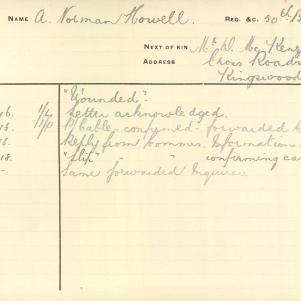 NAME A. Norman Howell. REG. &C. 50th B
NEXT OF KIN Mr. D. Mc Kenz
ADDRESS Cross Roads
Kingswood
"Wounded".
16. 1/4 Letter acknowledged.
Cable confirmed forwarded
Reply from Commdt. Information
18. "slip" - " confirming ca
- Same forwarded Inquirer